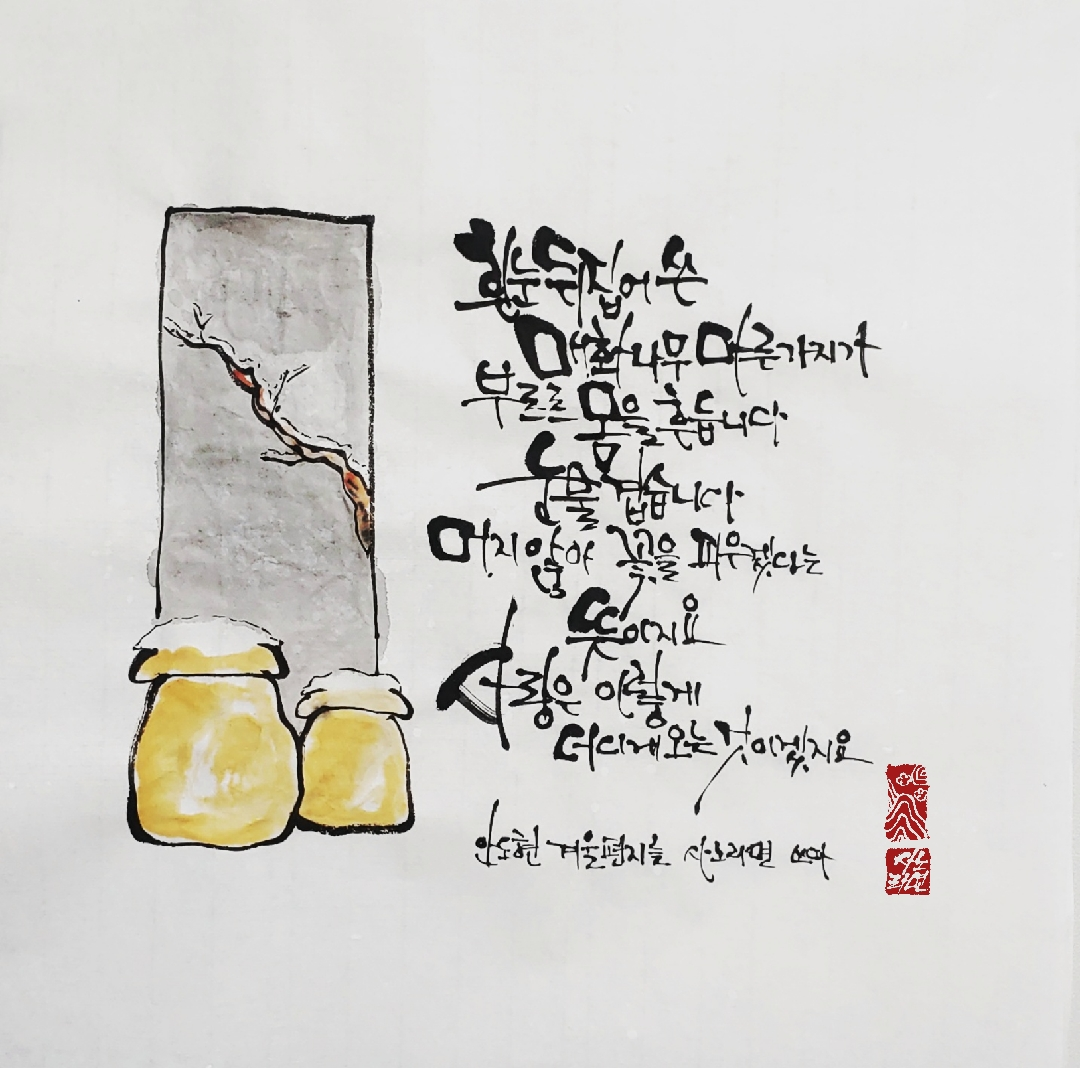 흰눈 뒤집어 쓴
매화나무 마른가지가
부르르 몸을 흔듭니다
눈물겹습니다
머지않아 꽃을 피우겠다는
뜻이지요
사랑은 이렇게
더디게 오는 것이겠지요
안도현 겨울편지를 사노라면 쓰다
사노
라면